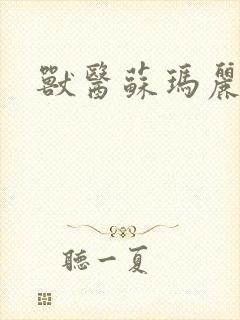 獸醫蘇瑪麗
聽一夏